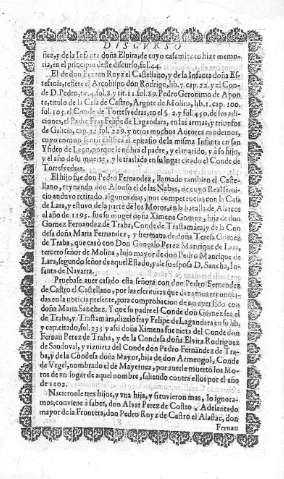 DISCVRSO
ñez, y de la Infanta doña Elvira, de cuyo casamiento hize memo-
ria, en el principio deste discurso, fol.44.
El de don Fernan Royz el Castellano, y de la Infanta doña Es-
tefania, refiere el Arçobispo don Rodrigo, lib.7. cap.22. y el Con-
de D. Pedro, Pedro Geronimo de Apon-
te, titulo de la Casa de Castro, Argote de Molina, lib.1. cap. 100.
fol. el Conde de Torresvedras, en el §. fol.50. de los
el Padre Fray Felipe de la Gandara, en las armas, y triunfos
de Galicia, cap. fol. 229. y otros muchos Autores modernos,
cuyo el epitafio de la misma Infanta en San
Ysidro de Leon, porque le el padre, y el marido, y año
y el año de su muerte, y le traslada en su lugar citado el Conde de
Torresvedras.
El hijo fue don Pedro Fernandez, llamado tambien el Caste-
llano, reynando don Alonso el de las Nabas, de cuyo Real servi-
cio anduvo retirado algunos dias, por competencias con la Casa
de Lara, y estuvo de la parte de los Moros, en la batalla de Alarcos
el año de 1195. fue su muger doña Ximena Gomez, hija de don
Gomez Fernandez de Traba, Conde de Trastamara, y de la Con-
desa doña Maria Fernandez, y hermana de doña Teresa Gomez
de Traba, que casó con Don Gonçalo Perez Manrique de Lara,
tercero señor de Molina, hijo mayor de don Pedro Manrique de
Lara, segundo señor de aquel Estado, y de su esposa D. Sancha, In-
fanta de Navarra.
Pruebase aver casado esta señora con don Pedro Fernandez
de Castro el Castellano, por las escrituras que de
das en la noticia presente, para comprobacion de
doña Maria Sanchez. Y que su padre el Conde don Gomez fue el
de Traba, y Trastamara, dizelo fray Felipe de la Gandara en su lib.
y cap. citado, fol. 235. y assi doña Ximena fue nieta del Conde don
Fernan Perez de Traba, y de la Condesa doña Elvira Rodriguez
de Sandoval, y viznieta del Conde don Pedro Fernandez de Tra-
ba, y de la Condesa doña Mayor, hija de don Armengol, Conde
de Vrgel, nombrado el de Mayeruca, por averle muerto los Mo-
ros en vn lugar de aquel nombre, saliendo contra ellos por el año
de 1102.
Nacieronle tres hijos, y vna hija, y si tuvieron mas, lo ignora-
mos, conviene à saber, don Alvar Perez de Castro, Adelantado
mayor de la Frontera, don Pedro Royz de Castro el Alastac, don
Fernan